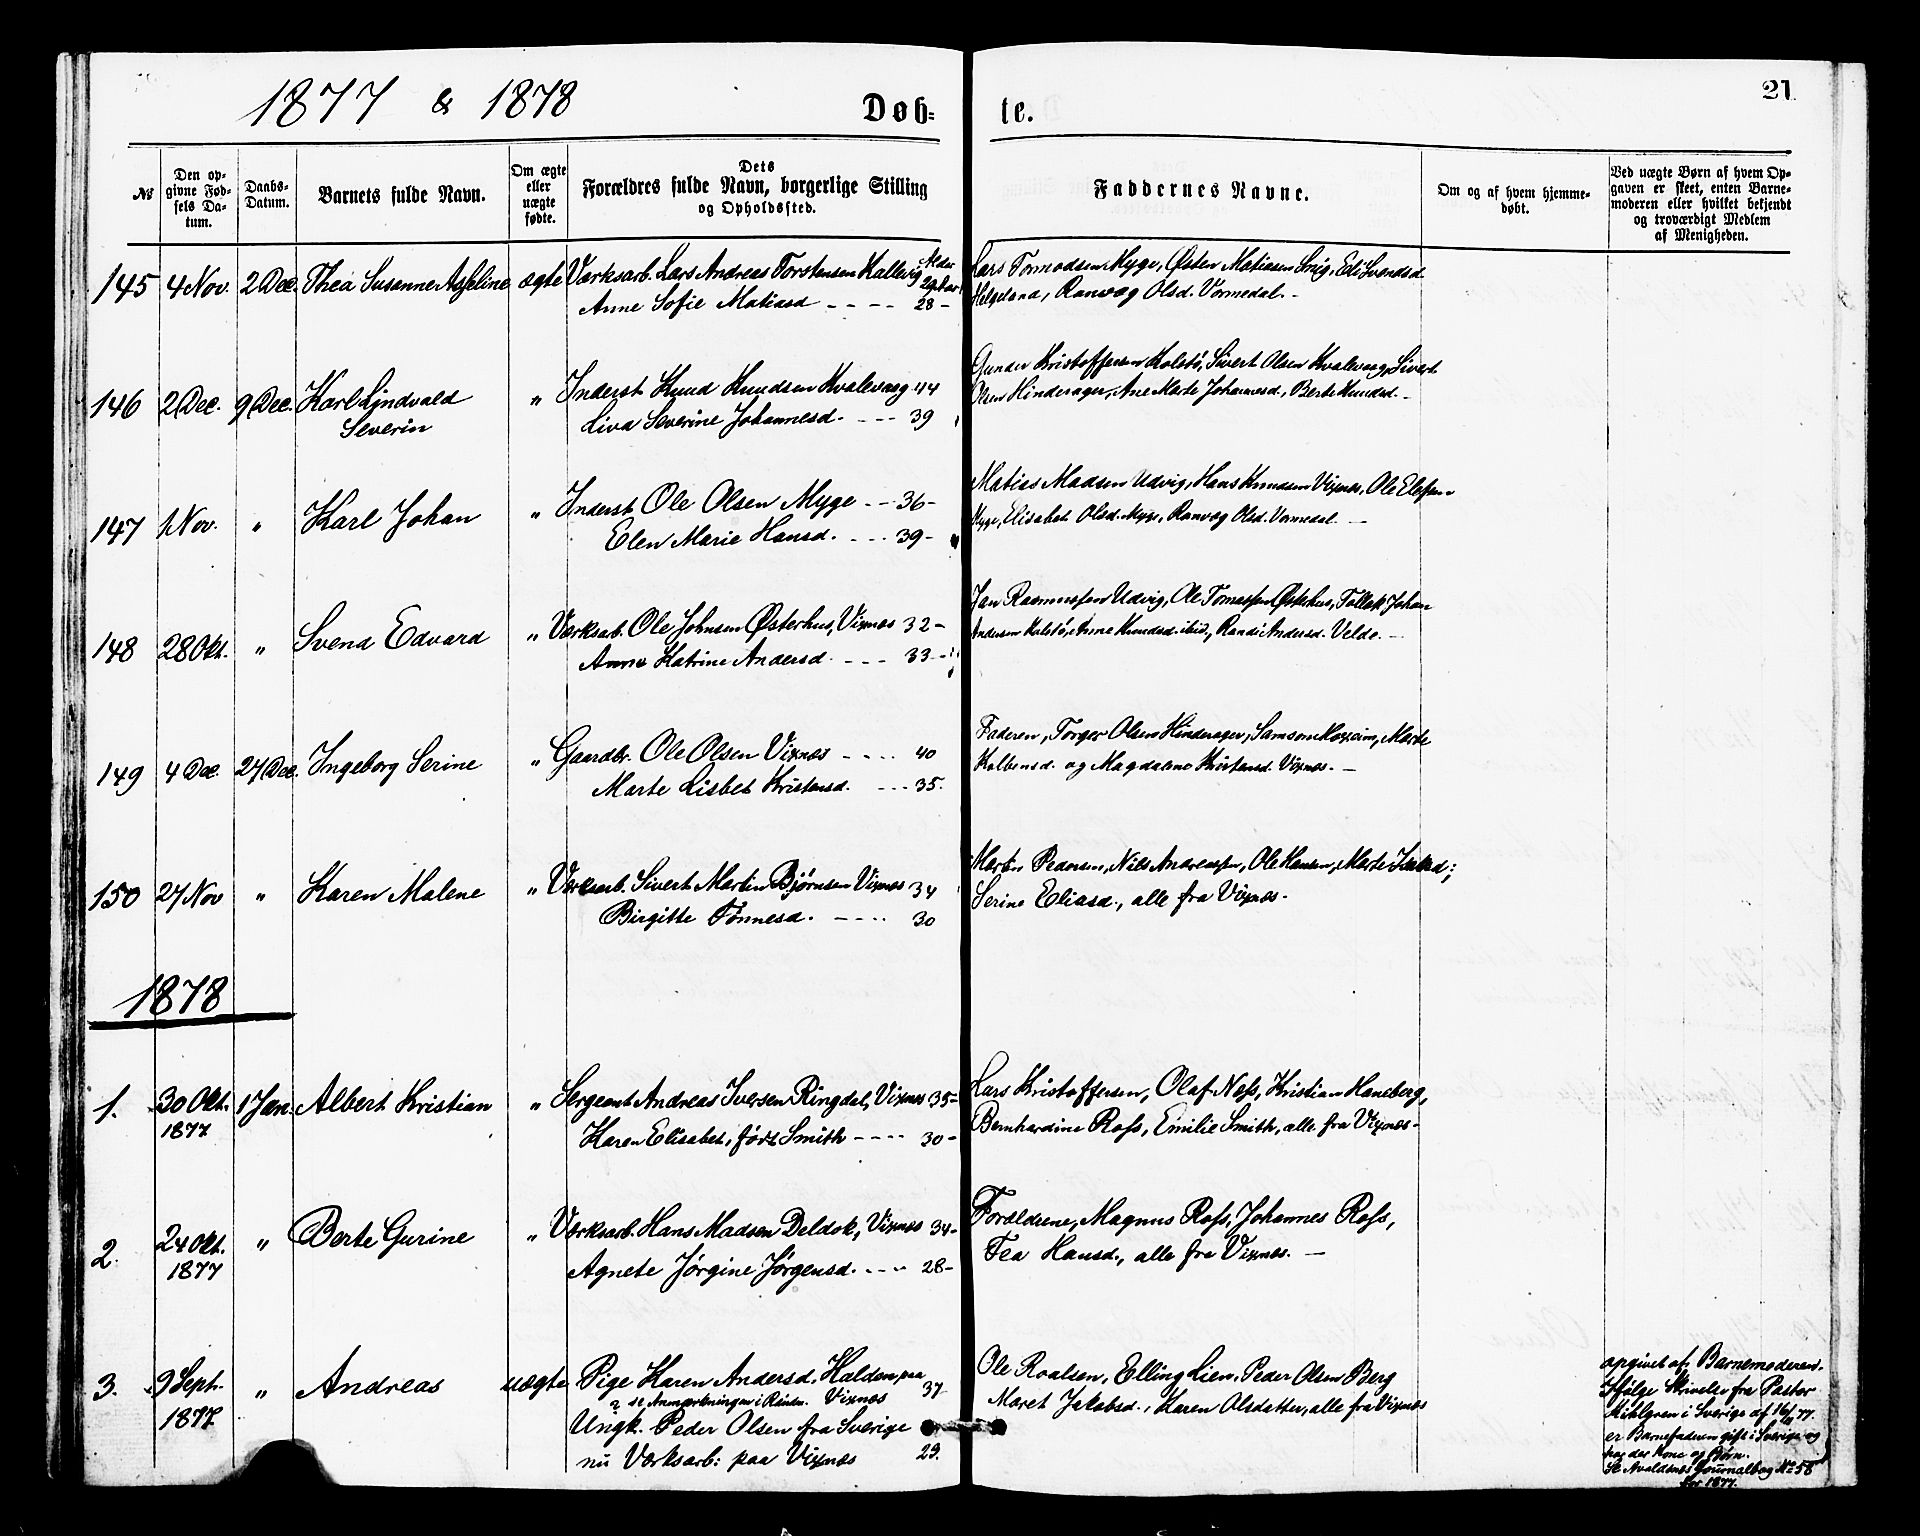 1877 & 1878
Døb-
te.
21
№
Den op-
givne Fød-
sels Da-
tum.
Daabs-
Datum.
Barnets fulde Navn.
Om ægte
eller
uægte
fødte.
Dets
Forældres fulde Navn, borgerlige Stilling
og Opholdssted.
Faddernes Navne.
Om og af hvem hjemme-
døbt.
Ved uægte Børn af hvem Op-
gaven er skeet, enten Barne-
moderen eller hvilket bekjendt
og troværdigt Medlem
af Menigheden.
145 4 Nov. 2 Dec. Thea Susanne Asseline ægte Værksarb. Lars Andreas Torstensen Hallevig Alder 29
Anne Sofie Matiasd - - - - 28 -
Lars Tormodsen Myge, Østen Matiasen Svendsd.
Helgeland, Ranvæg Olsd. Vormedal. -
146 2 Dec. 9 Dec. Karl Lindvald " Inderst Knud Knudsen Kvalevaag 44
Severin Liva Severine Johannesd. - - - 39
Gunder Kristoffersen Kolstø, Sivert Olsen Kvalevaag, Sivert
Olsen Hinderager, Ane Marte Johannesd., Berte Knudsd. -
147 1 Nov. " Karl Johan " Inderst Ole Olsen Myge - - 36 -
Elen Marie Hansd. - - - 39 -
Matias Madsen Udvig, Hans Knudsen Vixnæs, Ole
Myge, Elisabet Olsd. Myge, Ranvæg Olsd. Vormedal. -
148 28 Okt. " Svend Edvard " Værksarb. Ole Johnsen Østerhus, Vixnæs 32 -
Anne Katrine Andersd. - - - 33 -
Jan Rasmussen Udvig, Ole Tomassen Østerhus, Tollak Johan
Andersen Kolstø, Anne Knudsd. ibid., Randi Andersd. Velde. -
149 4 Dec. 27 Dec. Ingeborg Serine " Gaardbr. Ole Olsen Vixnæs - - - - 40
Marte Lisbet Kristensd. - - - 35.
Faderen, Torger Olsen Hinderager, Samson Moxeim, Marte
Kolbensd. og Magdalene Kristensd. Vixnæs. -
150 27 Nov " Karen Malene " Værksarb. Sivert Martin Bjørnsen Vixnæs 34
Birgitte Tønnesd. - - - - 30
Martin Pedersen, Nils Andreassen, Ole Hansen, Marte
Serine Eliasd., alle fra Vixnæs. -
1878
1. 30 Okt. 1 Jan. Albert Kristian " Sergeant Andreas Iversen Ringdal, Vixnæs 35 -
1877 Karen Elisabet, født Smith - - - - 30 -
Lars Kristoffersen, Olaf Næss, Kristian Haneberg,
Bernhardine Ross, Emilie Smith, alle fra Vixnæs -
2. 24 Okt. " Berte Gurine " Værksarb. Hans Madsen Deldok, Vixnæs 34 -
1877 Agnete Jørgine Jørgensd. - - - - 28 -
Forældrene, Magnus Ross, Johannes Ross,
Tea Hansd., alle fra Vixnæs. -
3. 9 Sept. " Andreas uægte Pige Karen Andersd. Halden, paa
1877 ? se Anmærkningen i Vixnæs 37
Ungk. Peder Olsen fra Sverige
nu Værksarb: paa Vixnæs 29.
Ole Roalsen, Elling Lien, Peder Olsen Berg
Maret Jakobsd., Karen Olsdatter, alle fra Vixnæs
opgivet af Barnemoderen.
Ifølge Skrivelse fra Pastor
Kihlgren i Sverige af
er Barnefaderen gift i Sverige og
har der Kone og Børn.
Se Avaldsnes Journalbog № 58
for 1877.